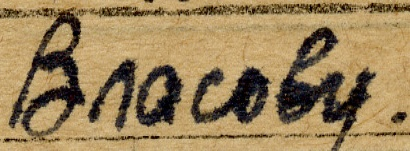 Власову.